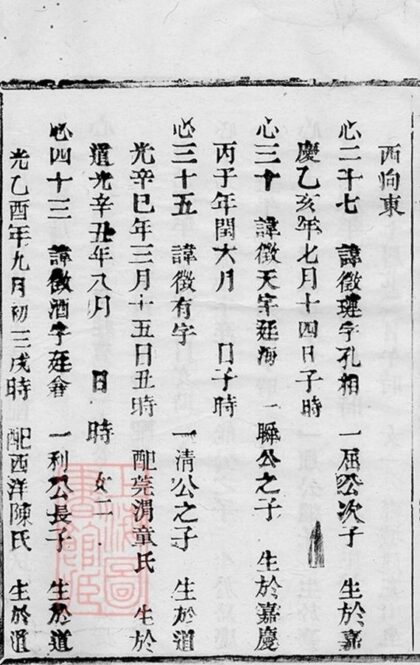 西向東
心二十七 諱徵璉字孔相 一屈公次子 生於嘉
慶乙亥年七月十四日子時
心三十 諱徵天字廷海 一聯公之子 生於嘉慶
丙子年閏六月 日子時
心三十五 諱徵有字 一清公之子 生於道
光辛巳年三月十五日丑時 配莞渭童氏 生於
道光辛丑年八月 日 時 女二
心四十三 諱徵酒字廷會 一利公長子 生於道
光乙酉年九月初三戌時 配西洋陳氏 生於道
上海圖書館藏